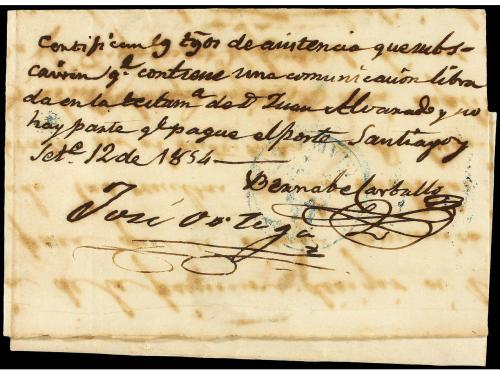 Certifican lg tgos de asistencia que subs-
criven qe. contiene una comunicación libra
da en la testamᵃ de Dⁿ Juan Alvarado y no
hay parte qe pague el porte Santiago y
Sete. 12 de 1854
Bernabe Carballo
José Ortega